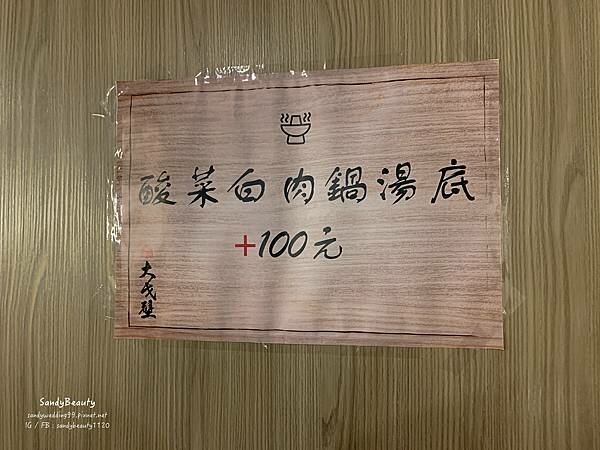 酸菜白肉鍋湯底
+100元
大戈壁
SandyBeauty
sandywedding99.pixnet.net
IG / FB : sandybeauty1120